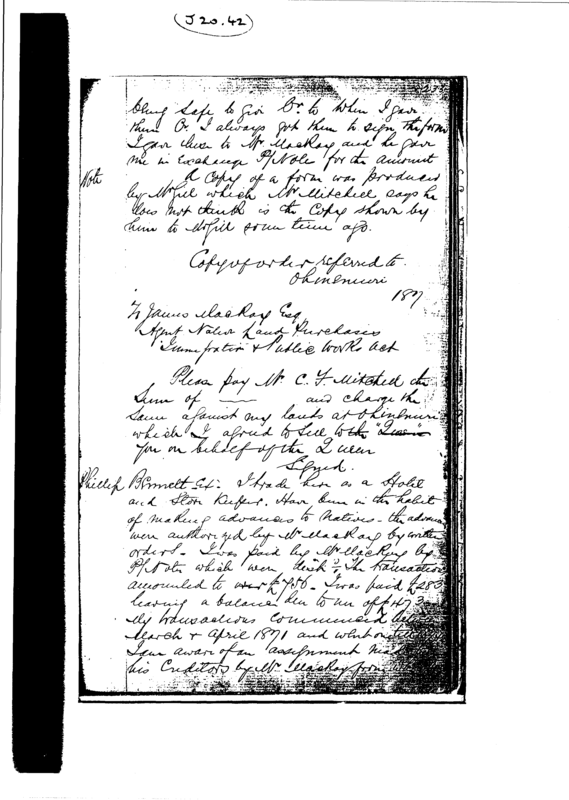 (J 20.42)
being safe to give Or. to when I gave
them Or. I always got them to sign the form
I gave these to Mr. MacKay and he gave
me in Exchange P/Note for the amount
Note A Copy of a form was produced
by McGill which Mr Mitchell says he
does not think is the Copy shown by
him to McGill some time ago.
Copy of order referred to.
Ohinemuri
187
To James MacKay Esq
Agent Native Land Purchases
Immigration & Public Works Act
Please pay Mr. C. F. Mitchell the
Sum of —— and charge the
Same against my lands at Ohinemuri
which I agreed to sell to the "Queen"
you on behalf of the Queen
Signed.
Phillip Bennett Ex: I trade here as a Hotel
and Store Keeper. Have been in the habit
of making advances to Natives – the advances
were authorized by Mr MacKay by written
orders. I was paid by Mr MacKay by
P/Notes which were The transactions
amounted to over £756. I was paid £283
leaving a balance due to me of £473
My transactions commenced
March & April 1871 and went on till
I am aware of an assignment made
his Creditors by Mr MacKay from